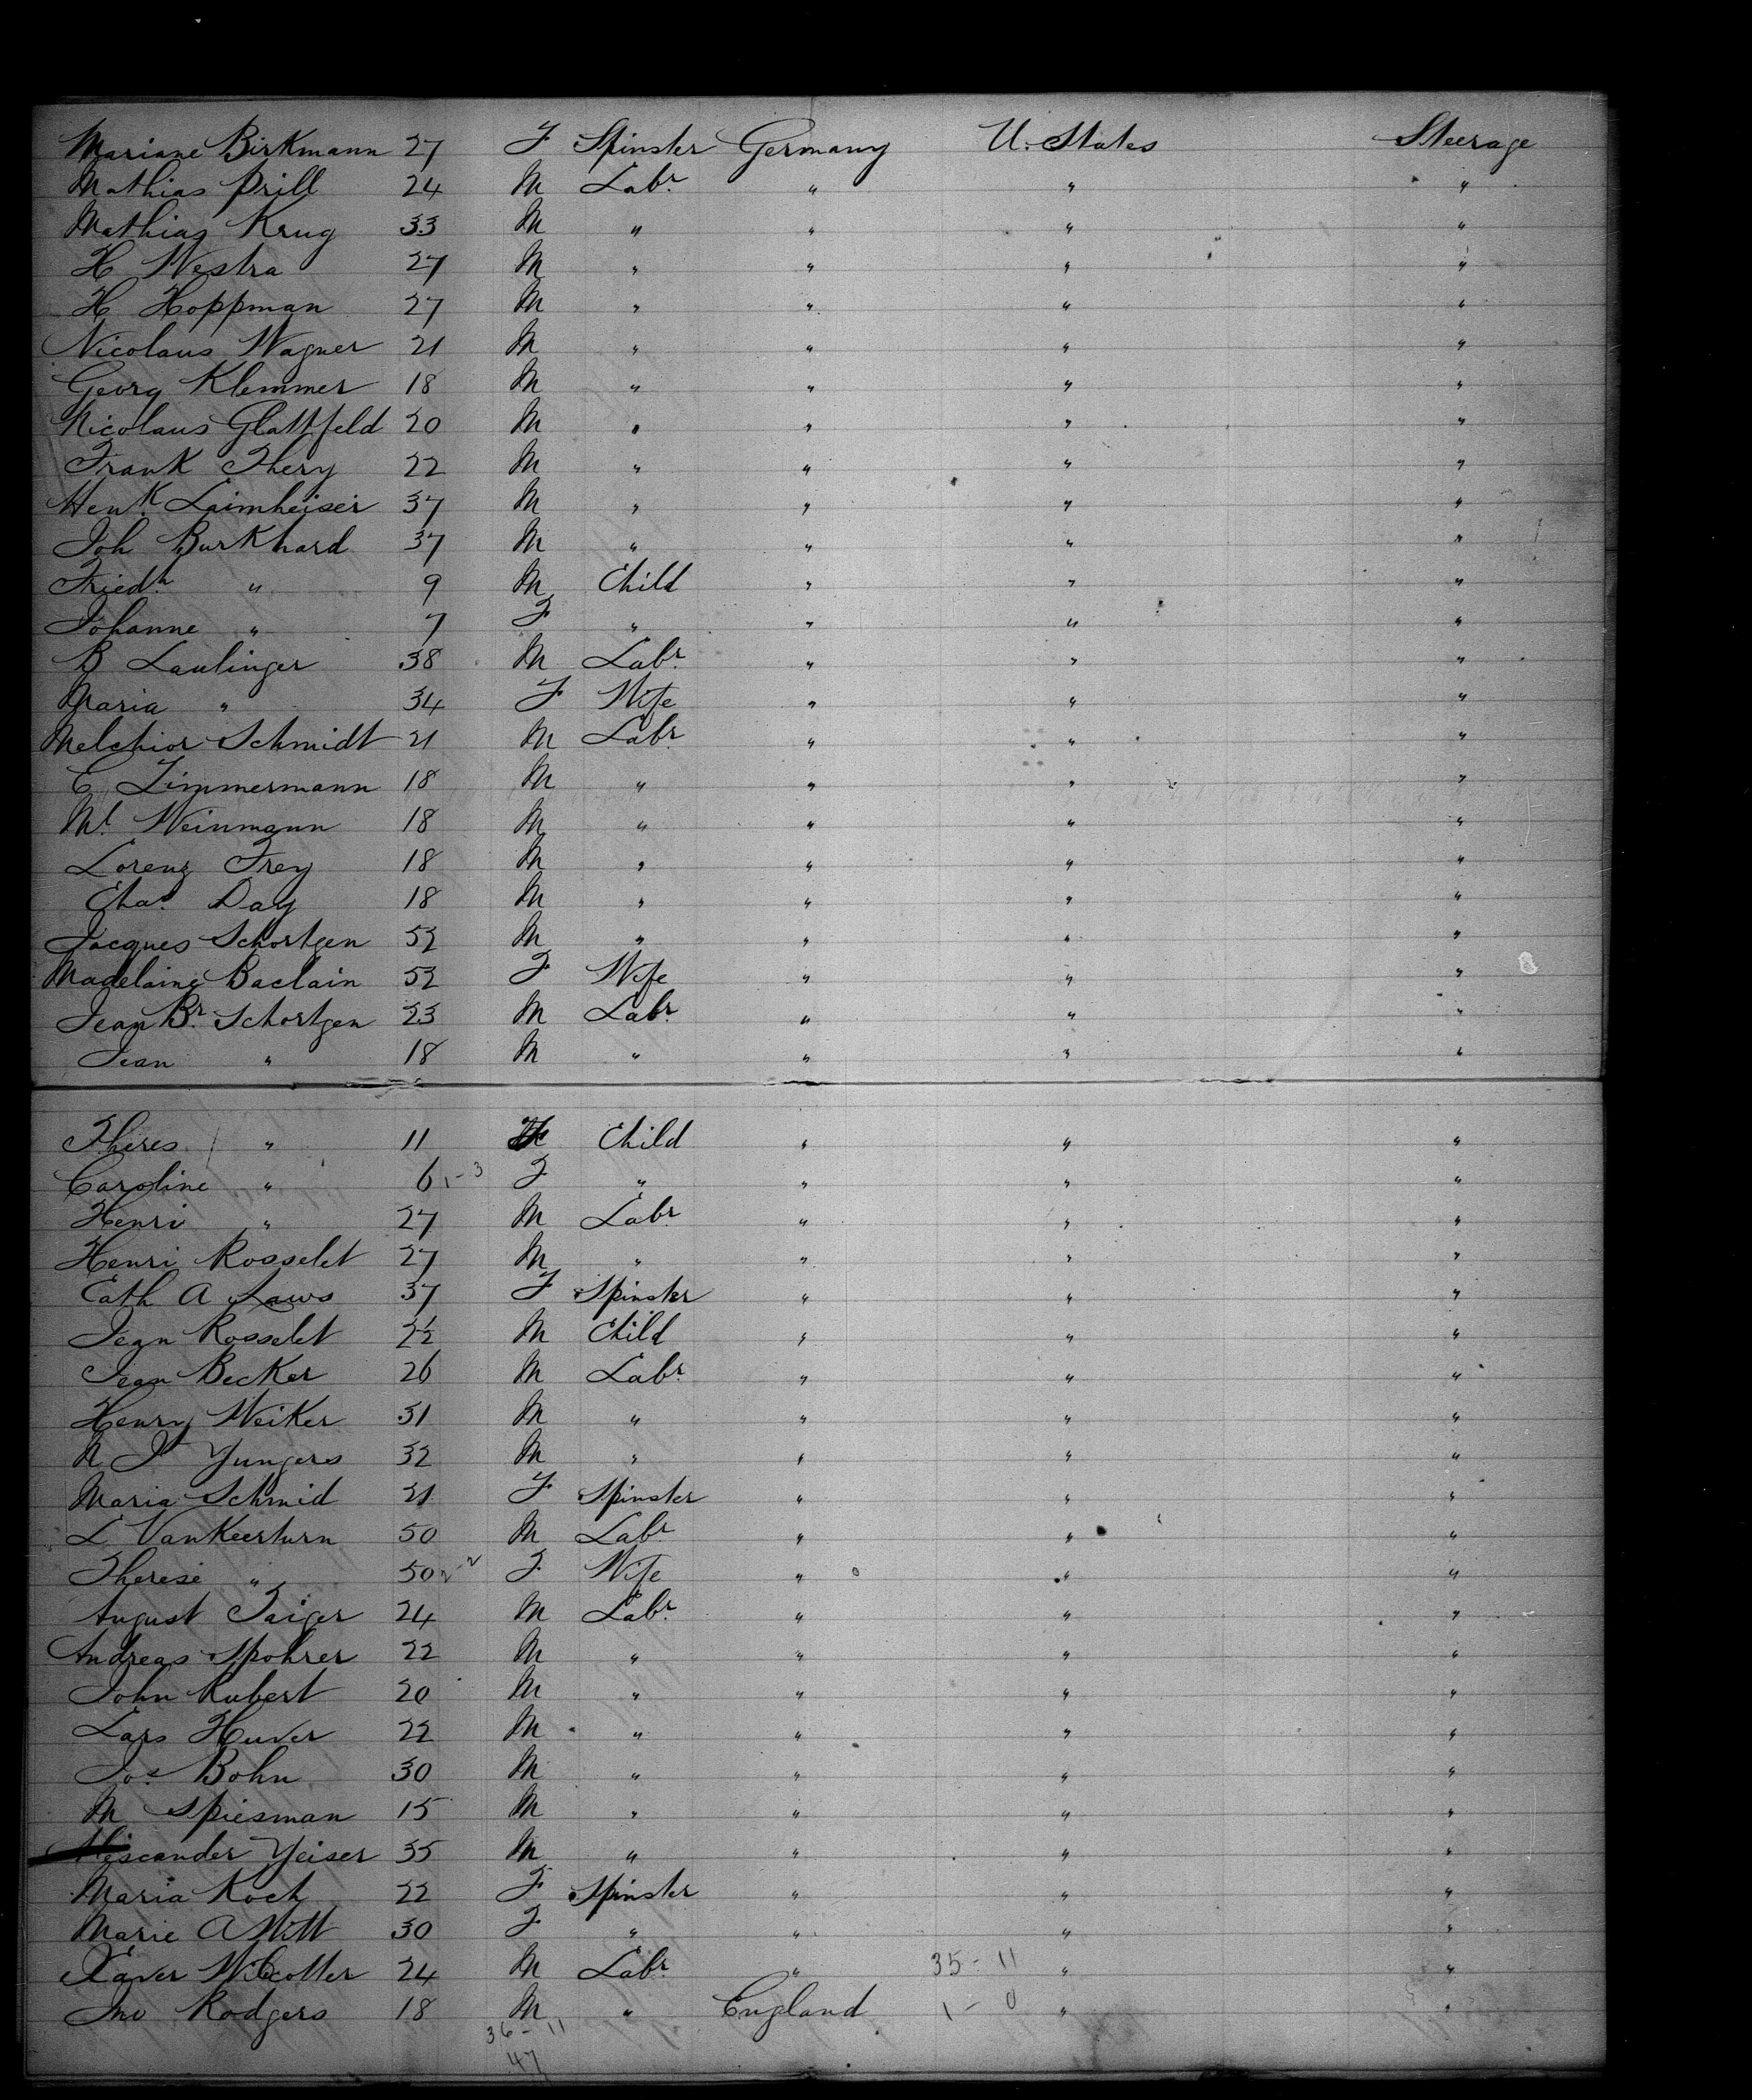 Mariane Birkmann 27 F Spinster Germany U. States Steerage
Mathias Prill 24 M Labr " " "
Mathias Krug 33 M " " " "
H Westra 27 M " " " "
H Hoppman 27 M " " " "
Nicolaus Wagner 21 M " " " "
Georg Klemmer 18 M " " " "
Nicolaus Glattfeld 20 M " " " "
Frank Thery 22 M " " " "
Henk Laimheiser 37 M " " " "
Joh Burkhard 37 M " " " "
Friedh " 9 M Child " " "
Johanne " 7 F " " " "
B Laulinger 38 M Labr " " "
Maria " 34 F Wife " " "
Melchior Schmidt 21 M Labr " " "
C Zimmermann 18 M " " " "
Ml Weinmann 18 M " " " "
Lorenz Frey 18 M " " " "
Chas Day 18 M " " " "
Jacques Schortgen 52 M " " " "
Madelaine Baclain 52 F Wife " " "
Jean Br Schortgen 23 M Labr " " "
Jean " 18 M " " " "
Theres " 11 F Child " " "
Caroline " 6 1-3 F " " " "
Henri " 27 M Labr " " "
Henri Rosselet 27 M " " " "
Cath A Laws 37 F Spinster " " "
Jean Rosselet 2½ M Child " " "
Jean Becker 26 M Labr " " "
Henry Weiker 31 M " " " "
N J Yungers 32 M " " " "
Maria Schmid 21 F Spinster " " "
L VanKeerturn 50 M Labr " " "
Therese " 50 2-2 F Wife " " "
August Taiger 24 M Labr " " "
Andreas Spohrer 22 M " " " "
John Rubert 20 M " " " "
Lars Huver 22 M " " " "
Jos Bohn 30 M " " " "
M Spiesman 15 M " " " "
Yeiser 35 M " " " "
Maria Koch 22 F Spinster " " "
Marie A Witt 30 F " " " "
Xaver 24 M Labr " 35-11 " "
Jno Rodgers 18 M " England 1-0 " "
36-11
47